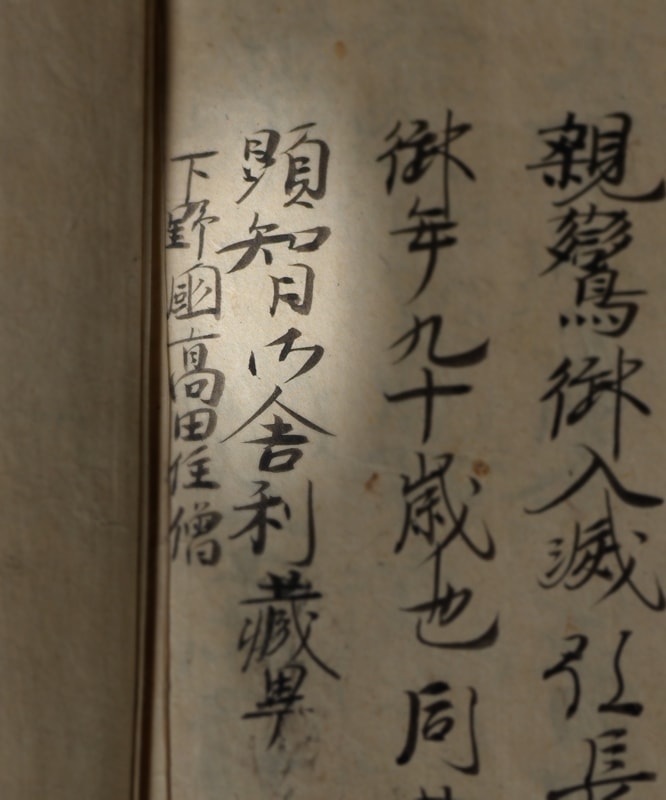 親鸞御入滅弘長
御年九十歳也同
顕智御舎利蔵畢
下野國高田住僧